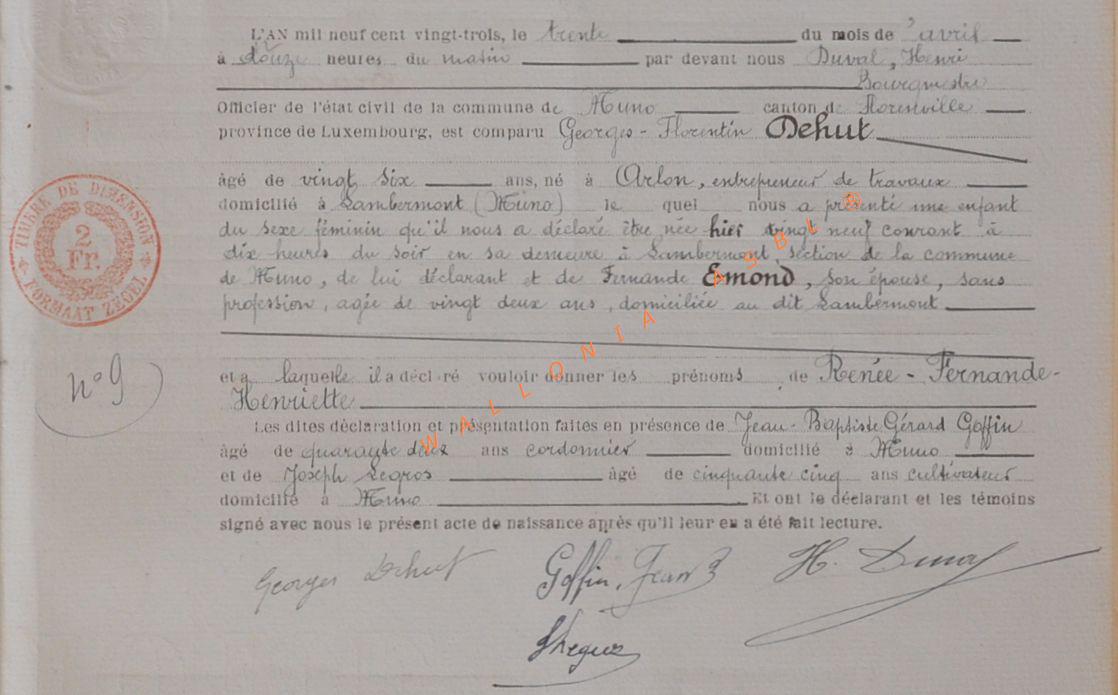 L'AN mil neuf cent vingt-trois, le trente du mois de avril
à douze heures du matin par devant nous Duval, Henri
Bourgmestre
Officier de l'état civil de la commune de Muno canton de Florenville
province de Luxembourg, est comparu Georges-Florentin Dehut
âgé de vingt six ans, né à Arlon, entrepreneur de travaux
domicilié à Lambermont (Muno) le quel nous a présenté une enfant
du sexe féminin qu'il nous a déclaré être née hier vingt neuf courant à
dix heures du soir en sa demeure à Lambermont, section de la commune
de Muno, de lui déclarant et de Fernande Emond, son épouse, sans
profession, agée de vingt deux ans, domiciliée au dit Lambermont
et a laquelle il a déclaré vouloir donner les prénoms de Renée-Fernande-
Henriette
Les dites déclaration et présentation faites en présence de Jean-Baptiste Gérard Goffin
âgé de quarante deux ans cordonnier domicilié à Muno
et de Joseph Legros âgé de cinquante cinq ans cultivateur
domicilié à Muno Et ont le déclarant et les témoins
signé avec nous le présent acte de naissance après qu'il leur en a été fait lecture.
Georges Dehut Goffin, Jean B H. Duval
TIMBRE DE DIMENSION
2
Fr.
FORMAAT ZEGEL
n° 9
WALLONIA ASBL ®